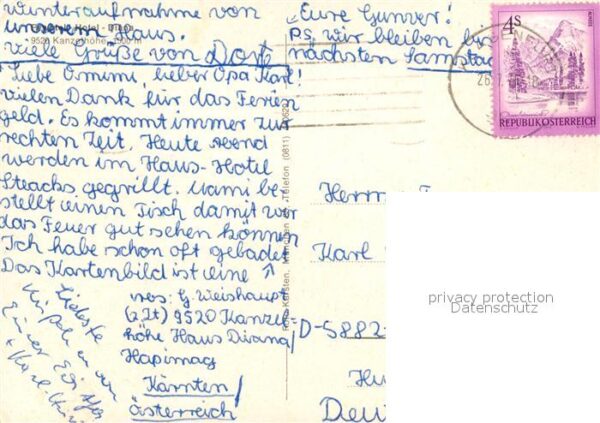 Winteraufnahme von
unserem Haus.
viele Grüße von Dort
Hotel
9520 Kanzelhöhe, 1500 m
Liebe Omimi, lieber Opa Karl!
vielen Dank für das Ferien
geld. Es kommt immer zur
rechten Zeit. Heute abend
werden im Haus-Hotel
Steachs gegrillt. Mami be-
stellt einen Tisch damit wir
das Feuer gut sehen können
Ich habe schon oft gebadet
Das Kartenbild ist eine ↑
Liebste
Einer
+ Karl
Abs: G. Weishaupt
(z. Zt) 9520 Kanzel-
höhe Haus Diana/
Hapimag
Kärnten/
Österreich
„Eure Gunver!
PS. Wir bleiben bis
nächsten Samstag
4s
REPUBLIK ÖSTERREICH
München Telefon (0811)
Herrn
Karl
D-5882
Deu
privacy protection
Datenschutz